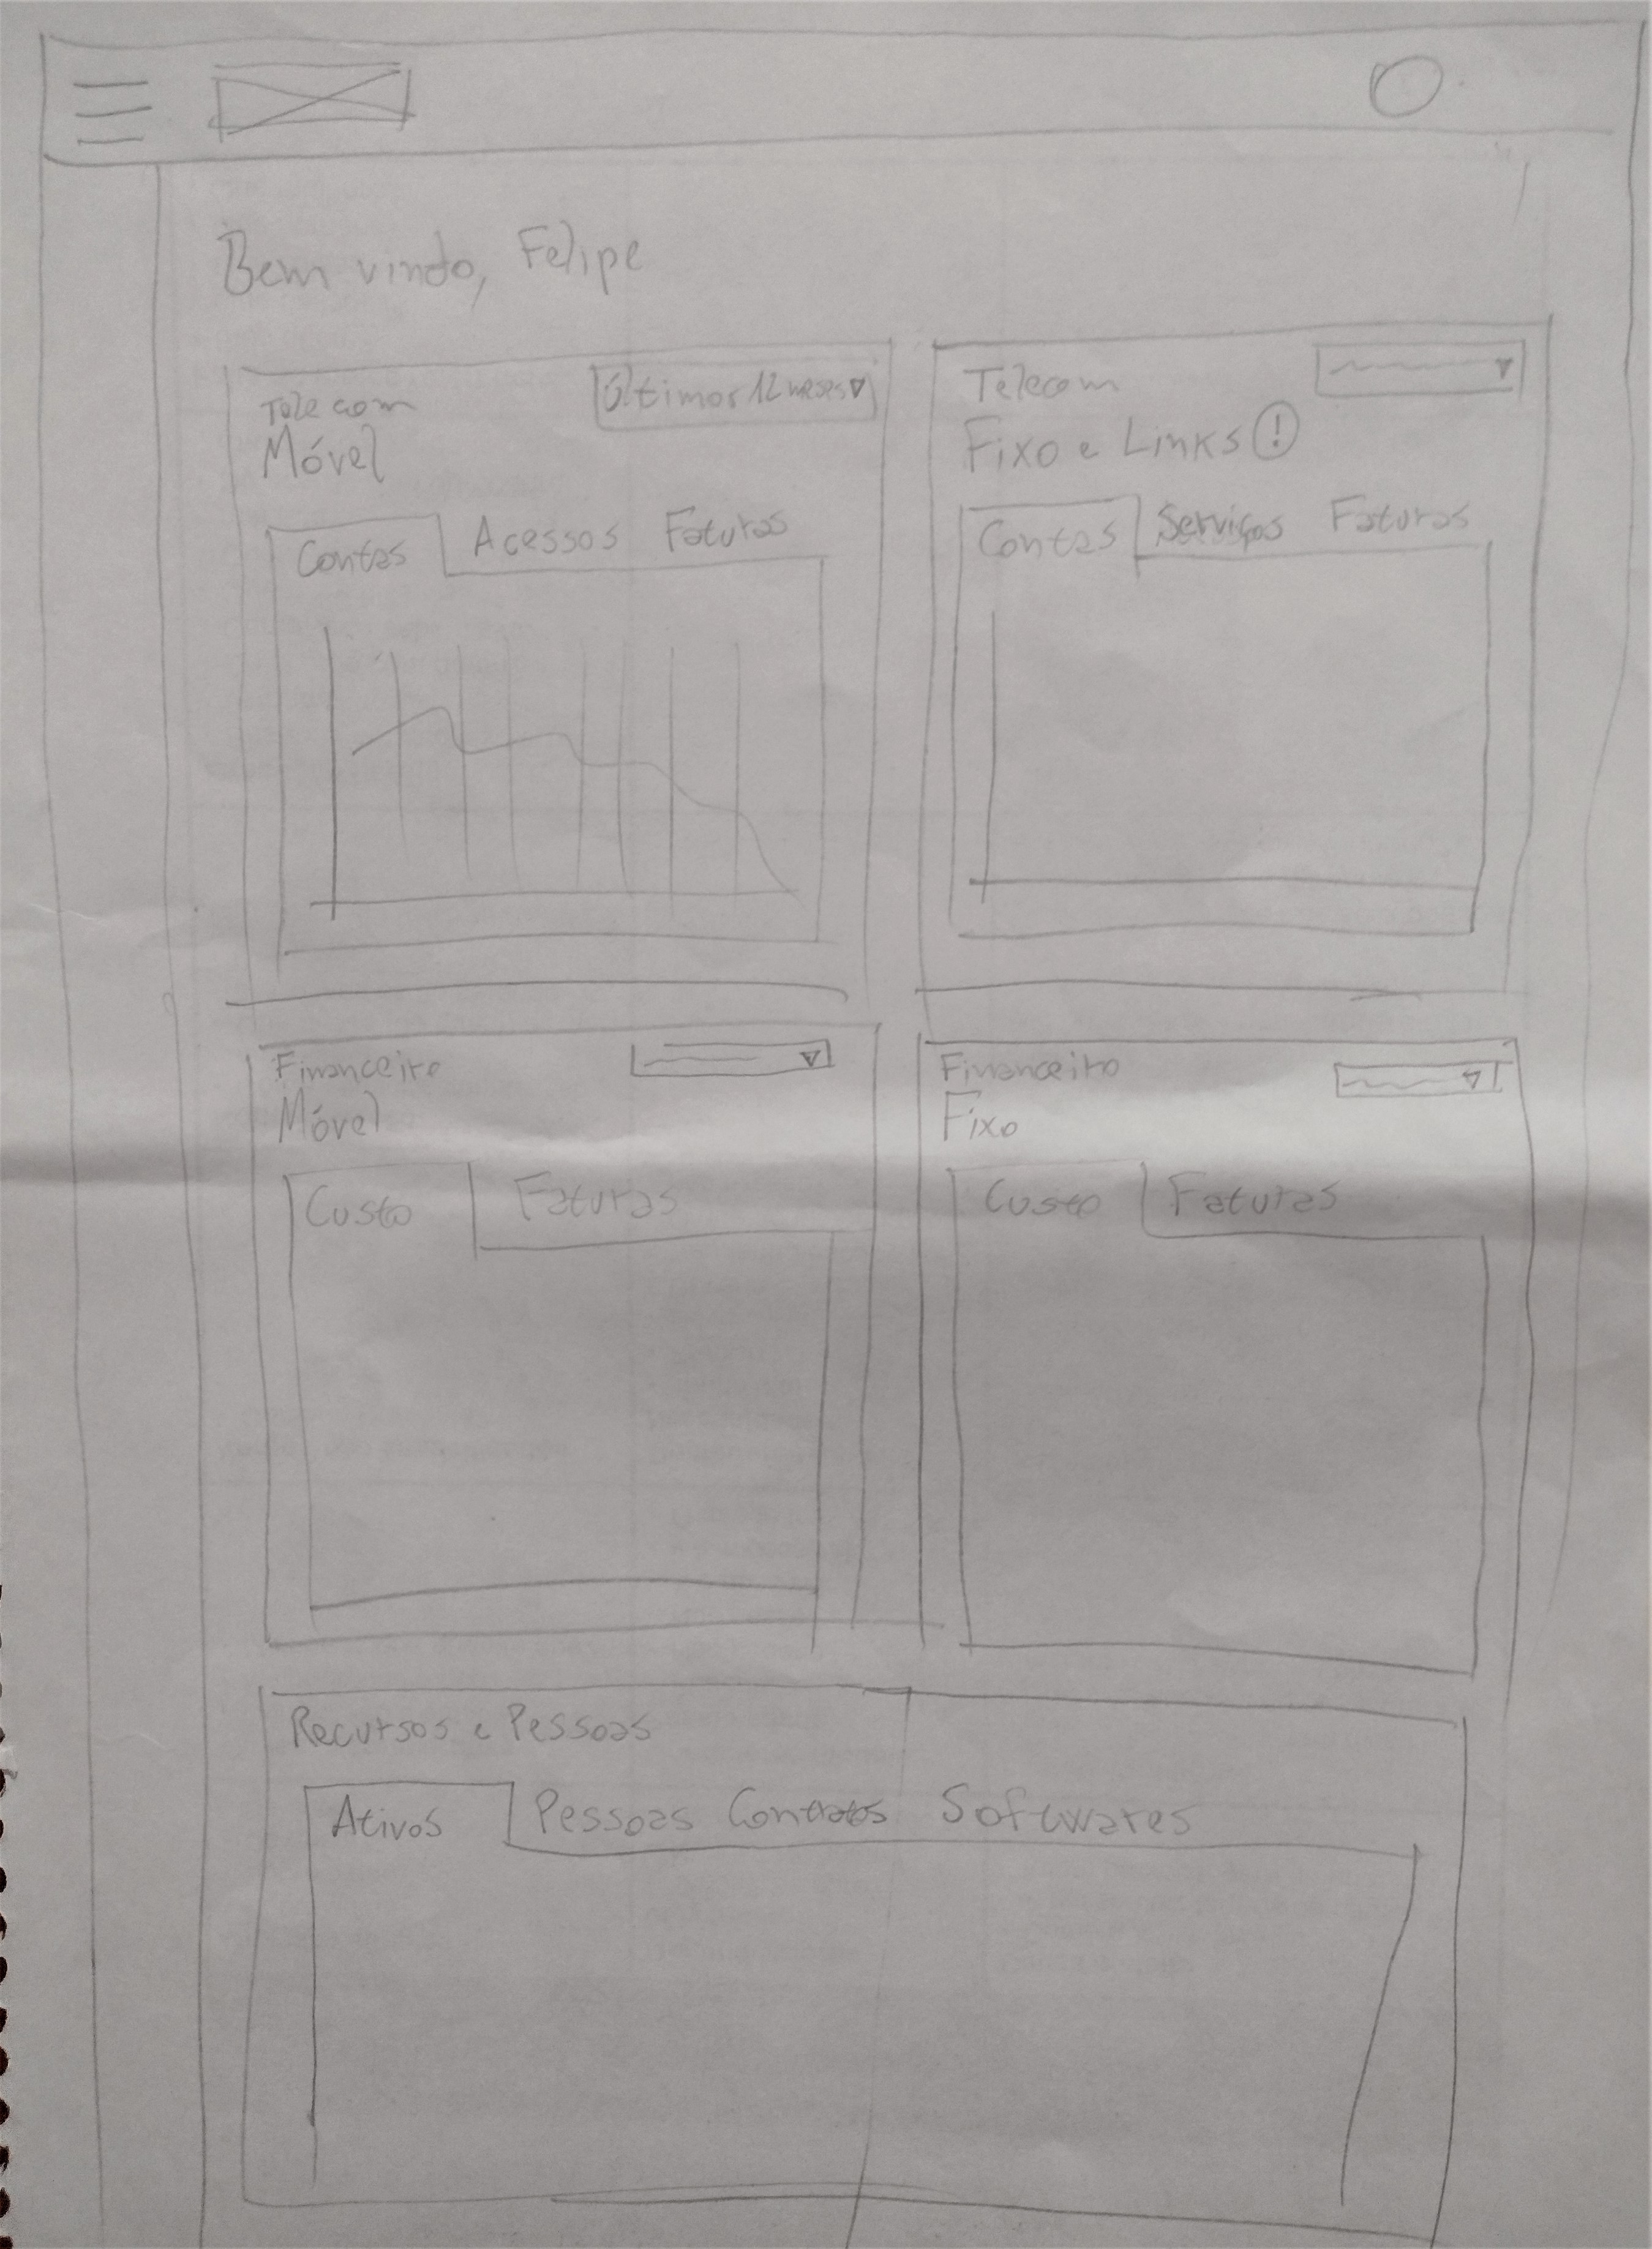 Bem vindo, Felipe
Telecom
Móvel
Últimos 12 meses
Contas Acessos Faturas
Telecom
Fixo e Links !
Contas Serviços Faturas
Financeiro
Móvel
Custo Faturas
Financeiro
Fixo
Custo Faturas
Recursos e Pessoas
Ativos Pessoas Contratos Softwares